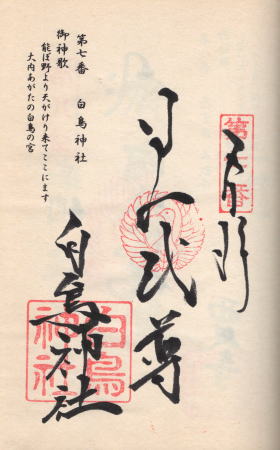 奉拝
第七番
日本武尊
白鳥神社
白鳥神社
第七番 白鳥神社
御神歌
能ぼ野より天がけり来てここにます
大内あがたの白鳥の宮